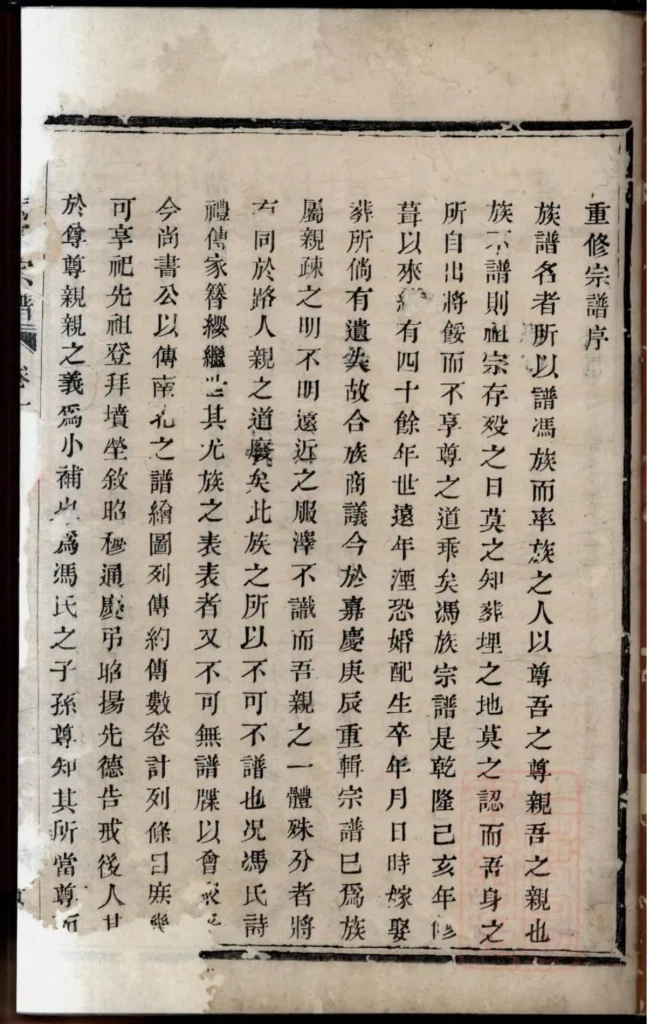 重修宗譜序
族譜名者所以譜馮族而率族之人以尊吾之尊親吾之親也
族不譜則祖宗存歿之日莫之知葬埋之地莫之認而吾身之
所自出將餒而不享尊之道乖矣馮族宗譜是乾隆己亥年修
葺以來 有四十餘年世遠年湮恐婚配生卒年月日時嫁娶
葬所倘有遺失故合族商議今於嘉慶庚辰重輯宗譜已爲族
屬親疎之明不明遠近之服澤不識而吾親之一體殊分者將
有同於路人親之道廢矣此族之所以不可不譜也况馮氏詩
禮傳家簪纓繼世其尤族之表表者又不可無譜牒以會
今尚書公以傳南北之譜繪圖列傳約傳數卷計列條目庶
可享祀先祖登拜墳塋敘昭穆通慶弔昭揚先德告戒後人
於尊尊親親之義爲小補也爲馮氏之子孫尊知其所當尊而
宗譜 卷一